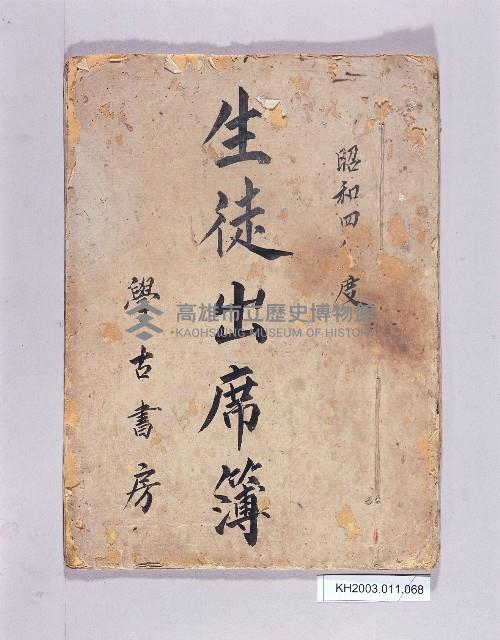 昭和四 度
生徒出席簿
學古書房
高雄市立歷史博物館
KAOHSIUNG MUSEUM OF HISTORY
KH2003.011.068